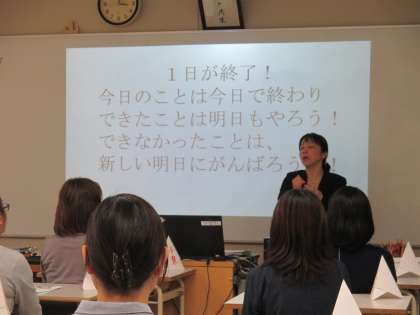 １日が終了！
今日のことは今日で終わり
できたことは明日もやろう！
できなかったことは、
新しい明日にがんばろう！